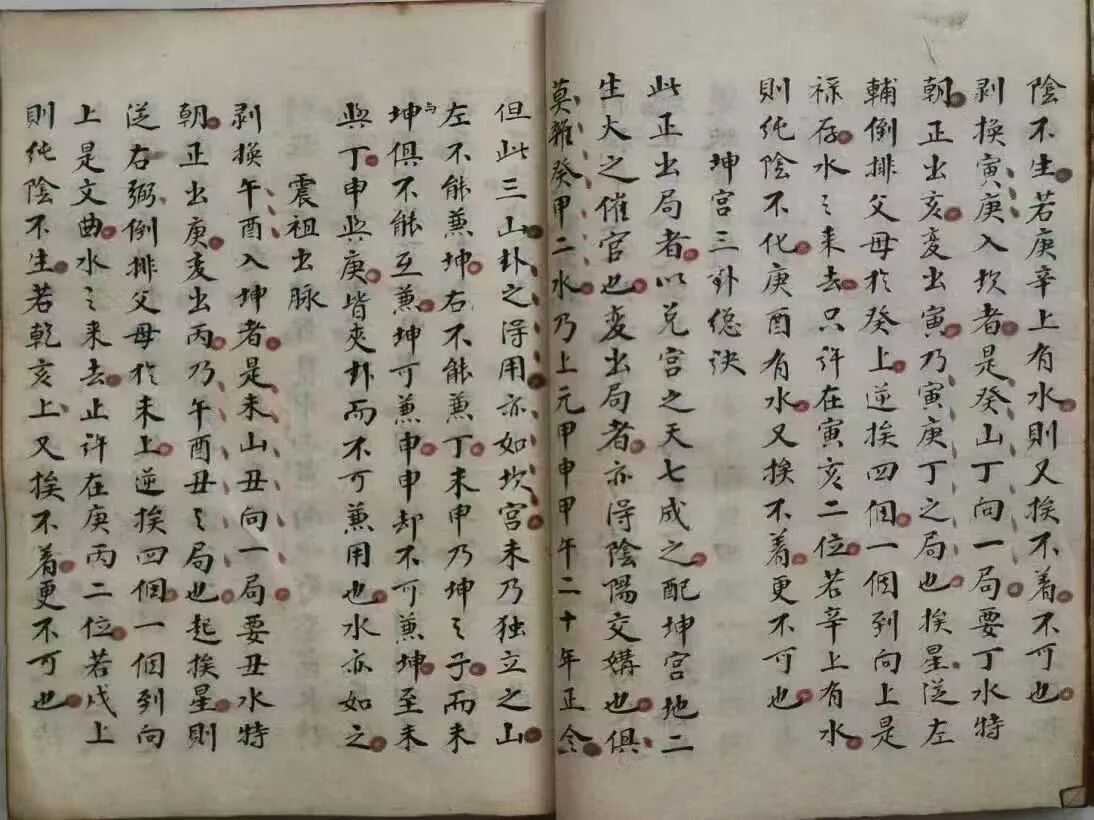 陰不生若庚辛上有水則又挨不着不可也
剥換寅庚入坎者是癸山丁向一局要丁水特
朝正出亥変出寅乃寅庚丁之局也挨星従左
輔倒排父母扵癸上逆挨四個一個到向上是
禄存水〻来去只许在寅亥二位若辛上有水
則纯陰不化庚酉有水又挨不着更不可也
坤宫三卦總诀
此正出局者以兑宫之天七成之配坤宫地二
生大之催官也変出局者亦淂陰陽交媾也俱
莫離癸甲二水乃上元甲申甲午二十年正令
但此三山卦之淂用亦如坎宫未乃独立之山
左不能兼坤右不能兼丁未申乃坤〻子而未
与坤俱不能互兼坤可兼申申却不可兼坤至未
與丁申與庚皆夾卦而不可兼用也水亦如之
震祖出脉
剥換午酉入坤者是未山丑向一局要丑水特
朝正出庚変出丙乃午酉丑〻局也起挨星則
従右弼倒排父母扵未上逆挨四個一個到向
上是文曲水〻来去止许在庚丙二位若戌上
則纯陰不生若乾亥上又挨不着更不可也